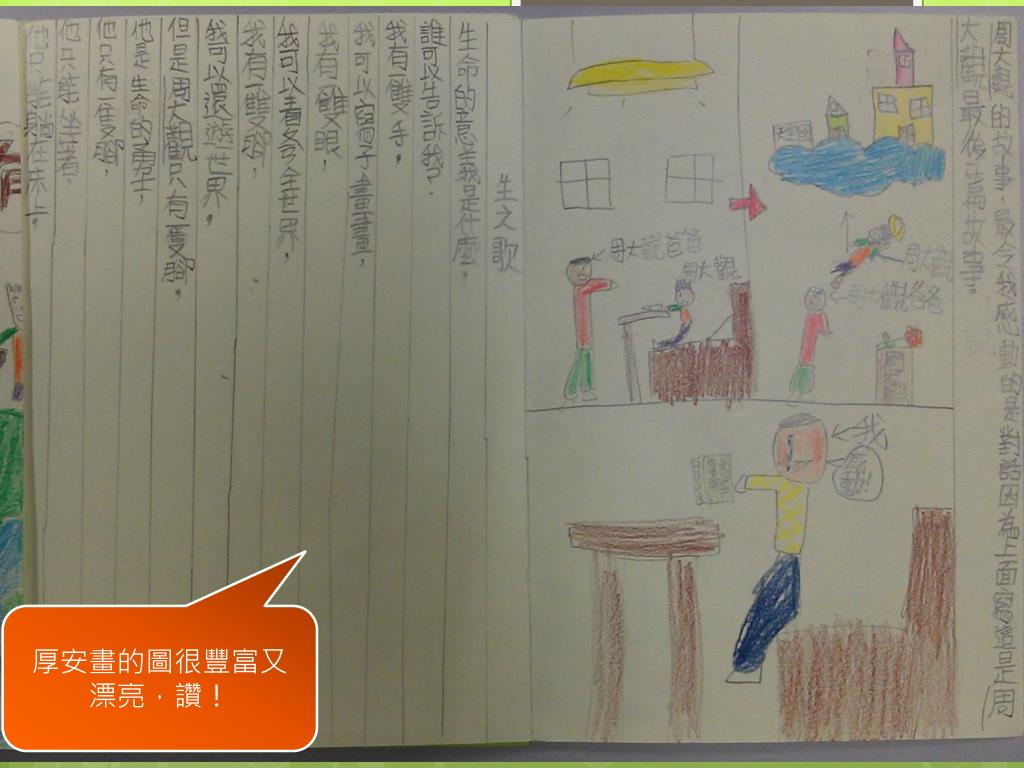 周大觀的故事,最今我感動的是對話因為上面寫這是周
大觀最後一篇故事。
周大觀爸爸
周大觀
周大觀
周大觀爸爸
我
感動!
生之歌
生命的意義是什麼,
誰可以告訴我.
我有一雙手,
我可以寫字畫畫,
我有一雙眼,
我可以看全世界,
我有一雙腳,
我可以還遊世界,
但是周大觀只有一隻腳,
他是生命的勇士,
他只有一隻腳,
他只能坐著,
他只能躺在床上
厚安畫的圖很豐富又
漂亮,讚!